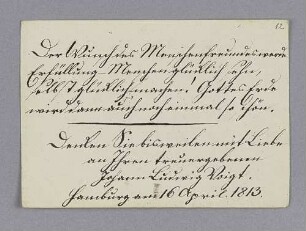 12
Der Wunsch des Menschenfreundes werde
Erfüllung Menschen glücklich sehn,
selbst glücklich machen! Gottes Erde
wird dann auch noch einmal so schön.
Denken Sie bisweilen mit Liebe
an Ihren treuergebenen
Johann Ludwig Voigt.
Hamburg am 16 April. 1813.